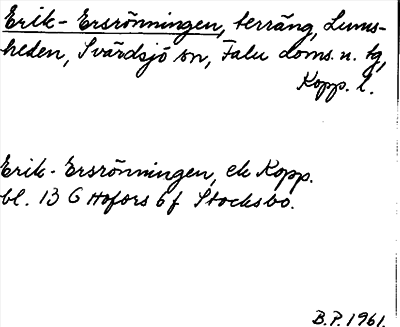 Erik-Ersrönningen, terräng, Lums-
heden, Svärdsjö sn, Falu doms. n. tg,
Kopp. l.
Erik-Ersrönningen, ek Kopp.
bl. 13 G Hofors 6 f Stocksbo.
B.P. 1961.